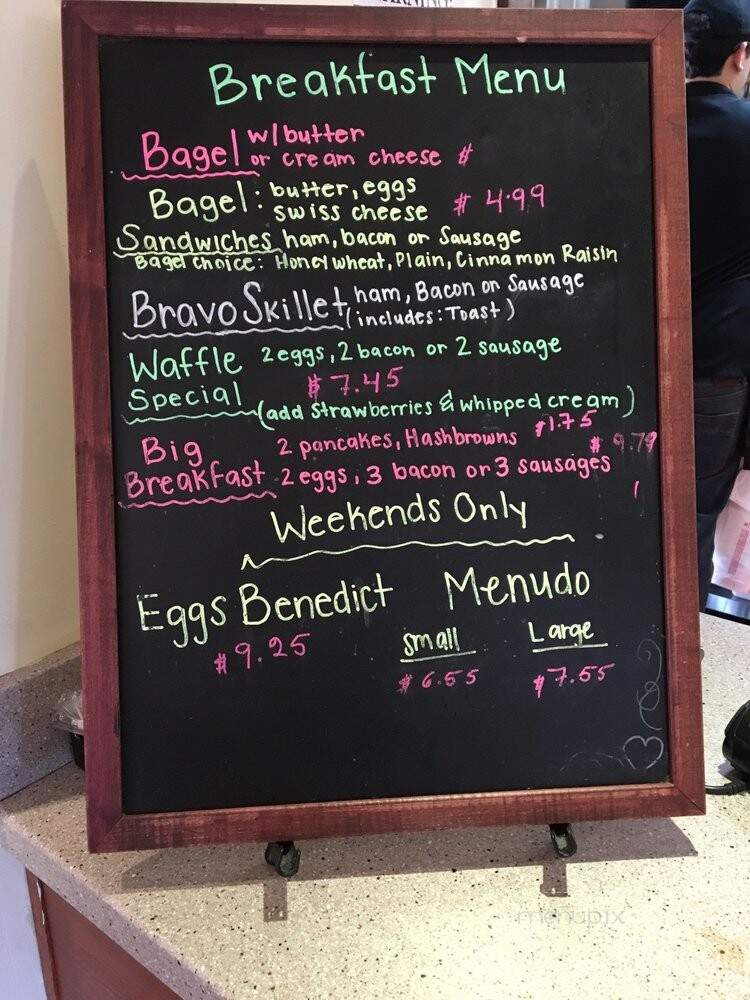 Breakfast Menu
Bagel w/butter
or cream cheese $
Bagel: butter, eggs
swiss cheese $ 4.99
Sandwiches ham, bacon or Sausage
Bagel choice: Honey wheat, Plain, Cinnamon Raisin
Bravo Skillet ham, Bacon or Sausage
(includes: Toast)
Waffle 2 eggs, 2 bacon or 2 sausage
Special $ 7.45
(add strawberries & whipped cream)
$1.75
Big 2 pancakes, Hashbrowns $ 9.79
Breakfast 2 eggs, 3 bacon or 3 sausages
Weekends Only
Eggs Benedict Menudo
$ 9.25 Small Large
$ 6.55 $7.55
menupix